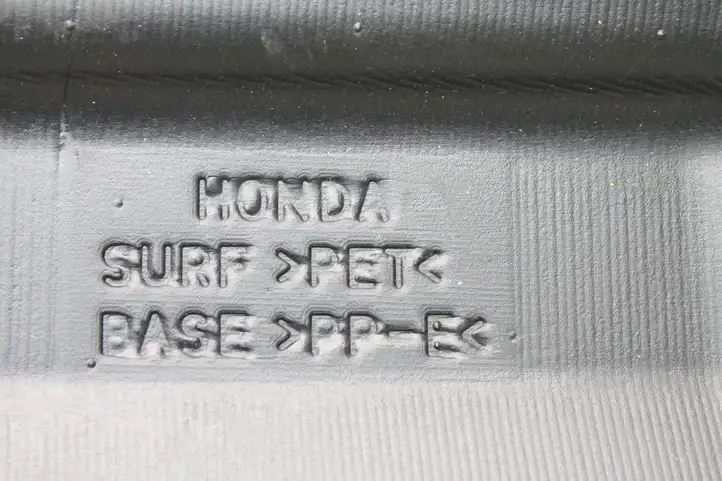 HONDA
SURF >PET<
BASE >PP-E<